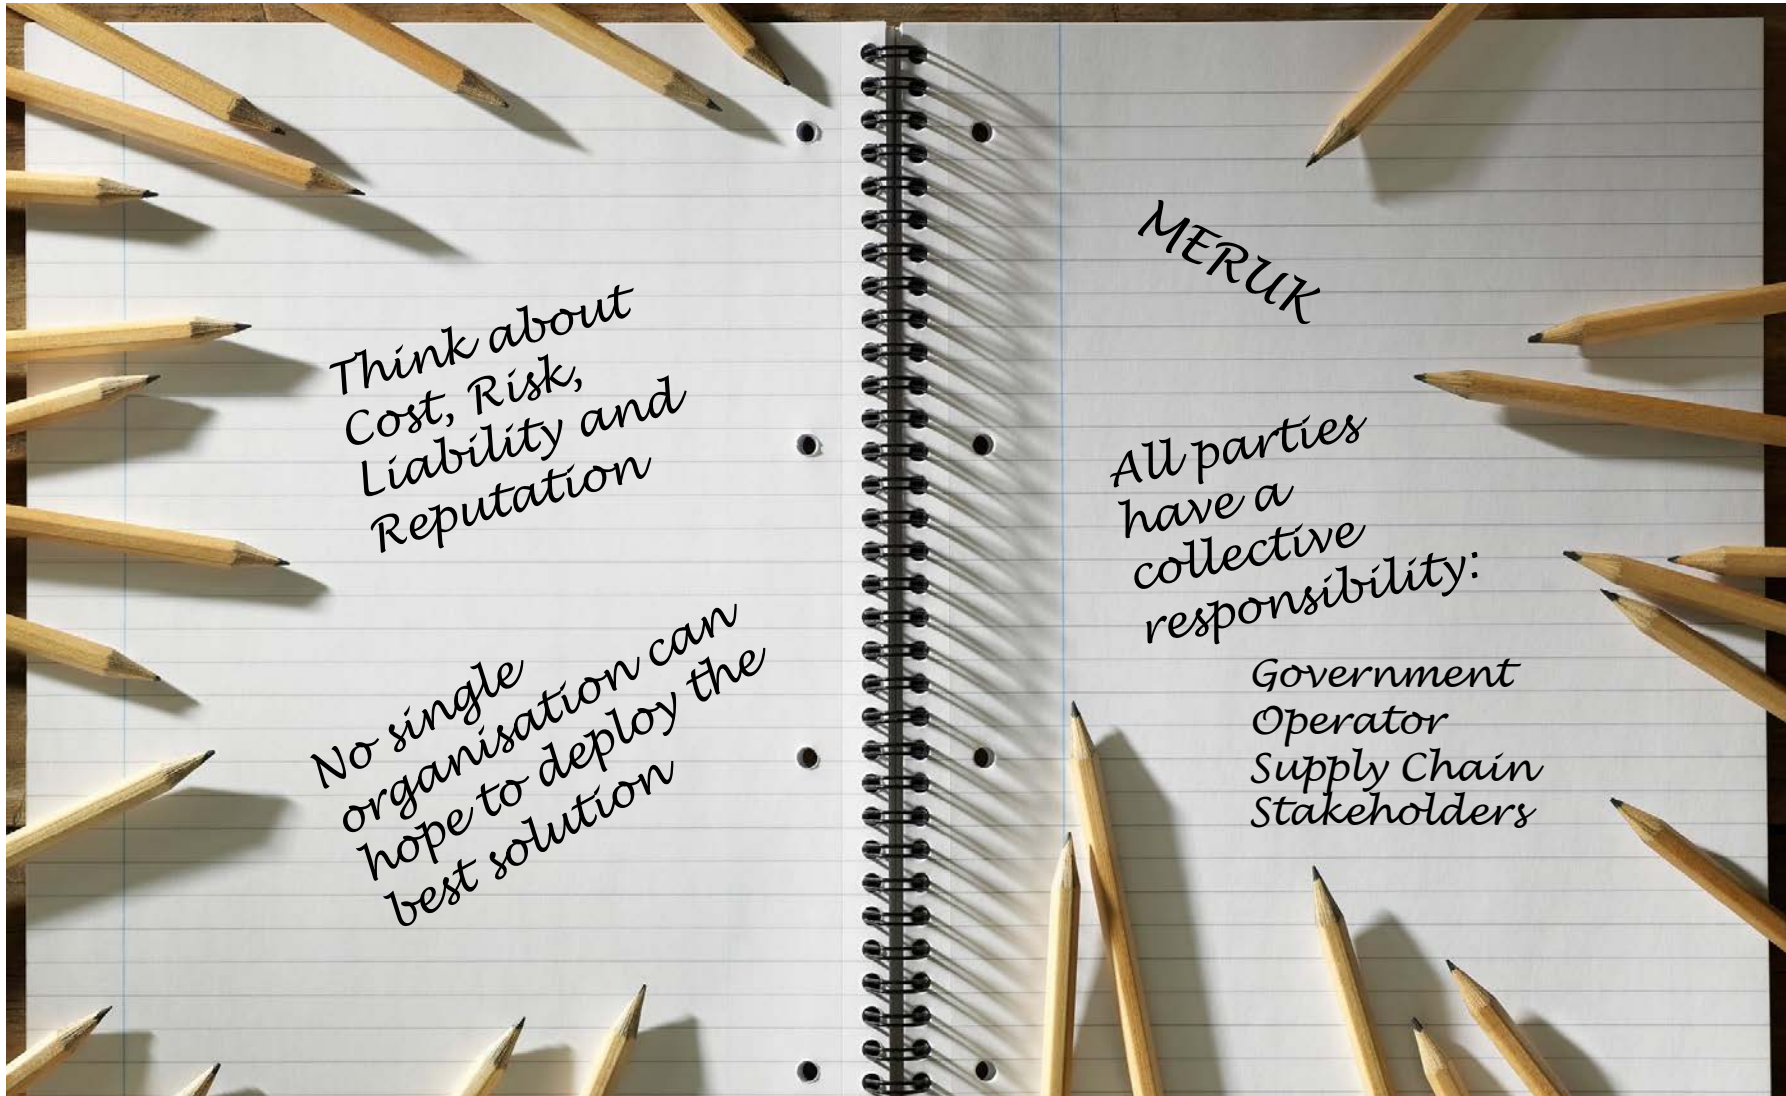 Think about
Cost, Risk,
Liability and
Reputation
No single
organisation can
hope to deploy the
best solution
MERUK
All parties
have a
collective
responsibility:
Government
Operator
Supply Chain
Stakeholders